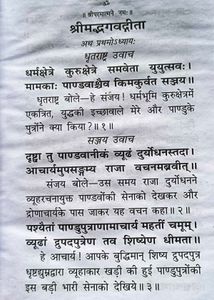 ॥ श्रीपरमात्मने नमः ॥
श्रीमद्भगवद्गीता
अथ प्रथमोऽध्यायः
धृतराष्ट्र उवाच
धर्मक्षेत्रे कुरुक्षेत्रे समवेता युयुत्सवः ।
मामकाः पाण्डवाश्चैव किमकुर्वत सञ्जय ॥
धृतराष्ट्र बोले—हे संजय! धर्मभूमि कुरुक्षेत्रमें
एकत्रित, युद्धकी इच्छावाले मेरे और पाण्डुके
पुत्रोंने क्या किया? ॥ १ ॥
सञ्जय उवाच
दृष्ट्वा तु पाण्डवानीकं व्यूढं दुर्योधनस्तदा ।
आचार्यमुपसङ्गम्य राजा वचनमब्रवीत् ॥
संजय बोले—उस समय राजा दुर्योधनने
व्यूहरचनायुक्त पाण्डवोंकी सेनाको देखकर और
द्रोणाचार्यके पास जाकर यह वचन कहा ॥ २ ॥
पश्यैतां पाण्डुपुत्राणामाचार्य महतीं चमूम् ।
व्यूढां द्रुपदपुत्रेण तव शिष्येण धीमता ॥
हे आचार्य! आपके बुद्धिमान् शिष्य द्रुपदपुत्र
धृष्टद्युम्नद्वारा व्यूहाकार खड़ी की हुई पाण्डुपुत्रोंकी
इस बड़ी भारी सेनाको देखिये ॥ ३ ॥